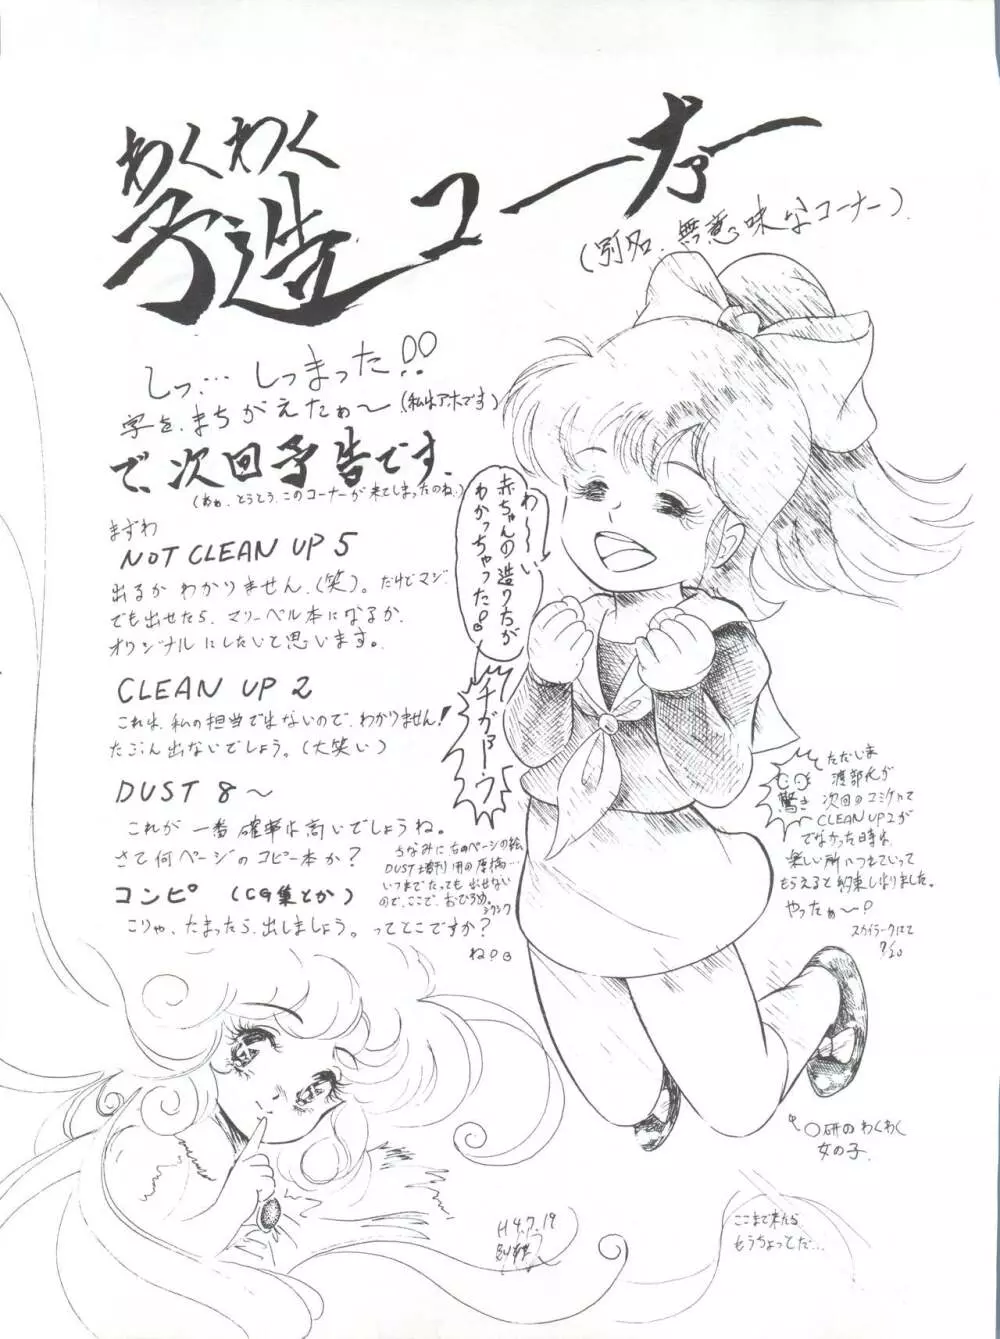 わくわく
予造コーナー
(別名、無意味なコーナー)
しっ… しっまった!!
字を、まちがえたぁ〜(私はアホです)
で、次回予告です。
(あぁ、とうとう、このコーナーが来てしまったのね。)
まずわ
NOT CLEAN UP 5
出るかわかりません。(笑)。だけどマジ
でも出せたら、マリーベル本になるか、
オリジナルにしたいと思います。
CLEAN UP 2
これは、私の担当ではないので、わかりません!
たぶん出ないでしょう。(大笑い)
DUST 8〜
これが一番確率は高いでしょうね。
さて何ページのコピー本か?
コンピ (CG集とか)
こりゃ、たまったら、出しましょう。ってとこですか?
わ〜〜い
赤ちゃんの造りかたが
わかっちゃった!
チガァーウ
ちなみに右のページの絵
DUST増刊用の原稿…
いつまでたっても出せない
ので、ここで、おひろめ。
ね!
驚き
ただしま
渡部氏が
次回のコミケにて
CLEAN UP 2が
でなかった時は、
楽しい所につれていって
もらえると約束しおりました。
やったぁ〜!
スカイラークにて
7/20
〇研のわくわく
女の子
H4.7.19
BY
ここまで来たら
もうちょっとだ…